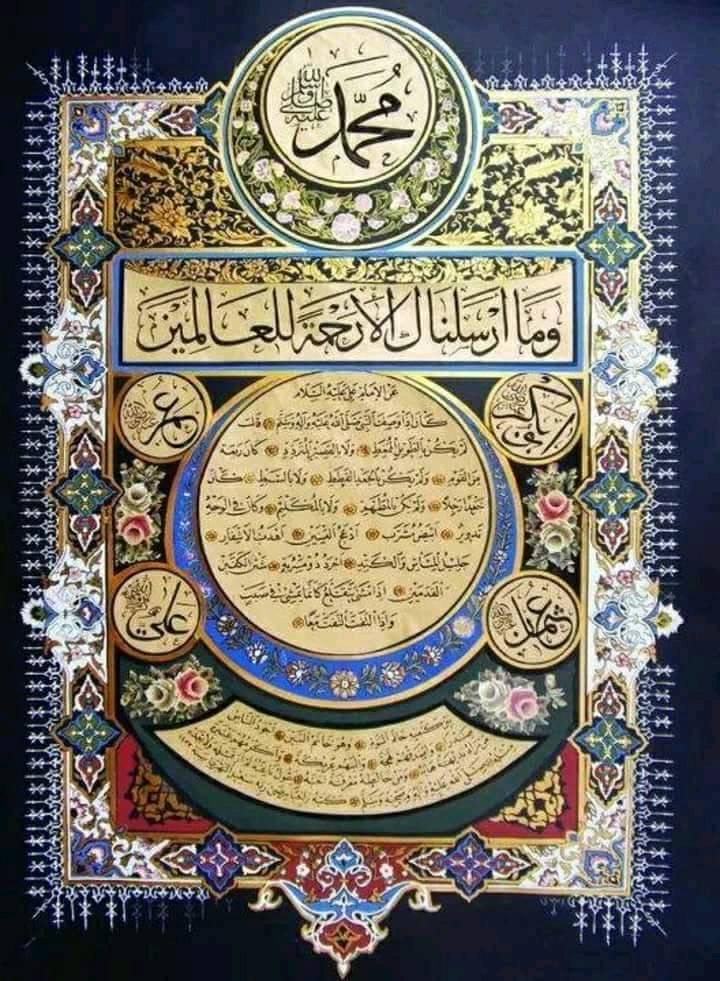 محمد
صلى الله عليه وسلم
وما أرسلناك إلا رحمة للعالمين
أبو بكر
عمر
عن الإمام علي عليه السلام
كان إذا وصف النبي صلى الله عليه وآله وسلم قال
لم يكن بالطويل الممغط ولا بالقصير المتردد كان ربعة
من القوم ولم يكن بالجعد القطط ولا بالسبط كان
جعدا رجلا ولم يكن بالمطهم ولا بالمكلثم وكان في الوجه
تدوير أبيض مشرب أدعج العينين أهدب الأشفار
جليل المشاش والكتد أجرد ذو مسربة شثن الكفين
والقدمين إذا مشى يتقلع كأنما يمشي في صبب
وإذا التفت التفت معا
عثمان
علي
بين كتفيه خاتم النبوة وهو خاتم النبيين أجود الناس
صدرا وأصدق الناس لهجة وألينهم عريكة وأكرمهم عشرة